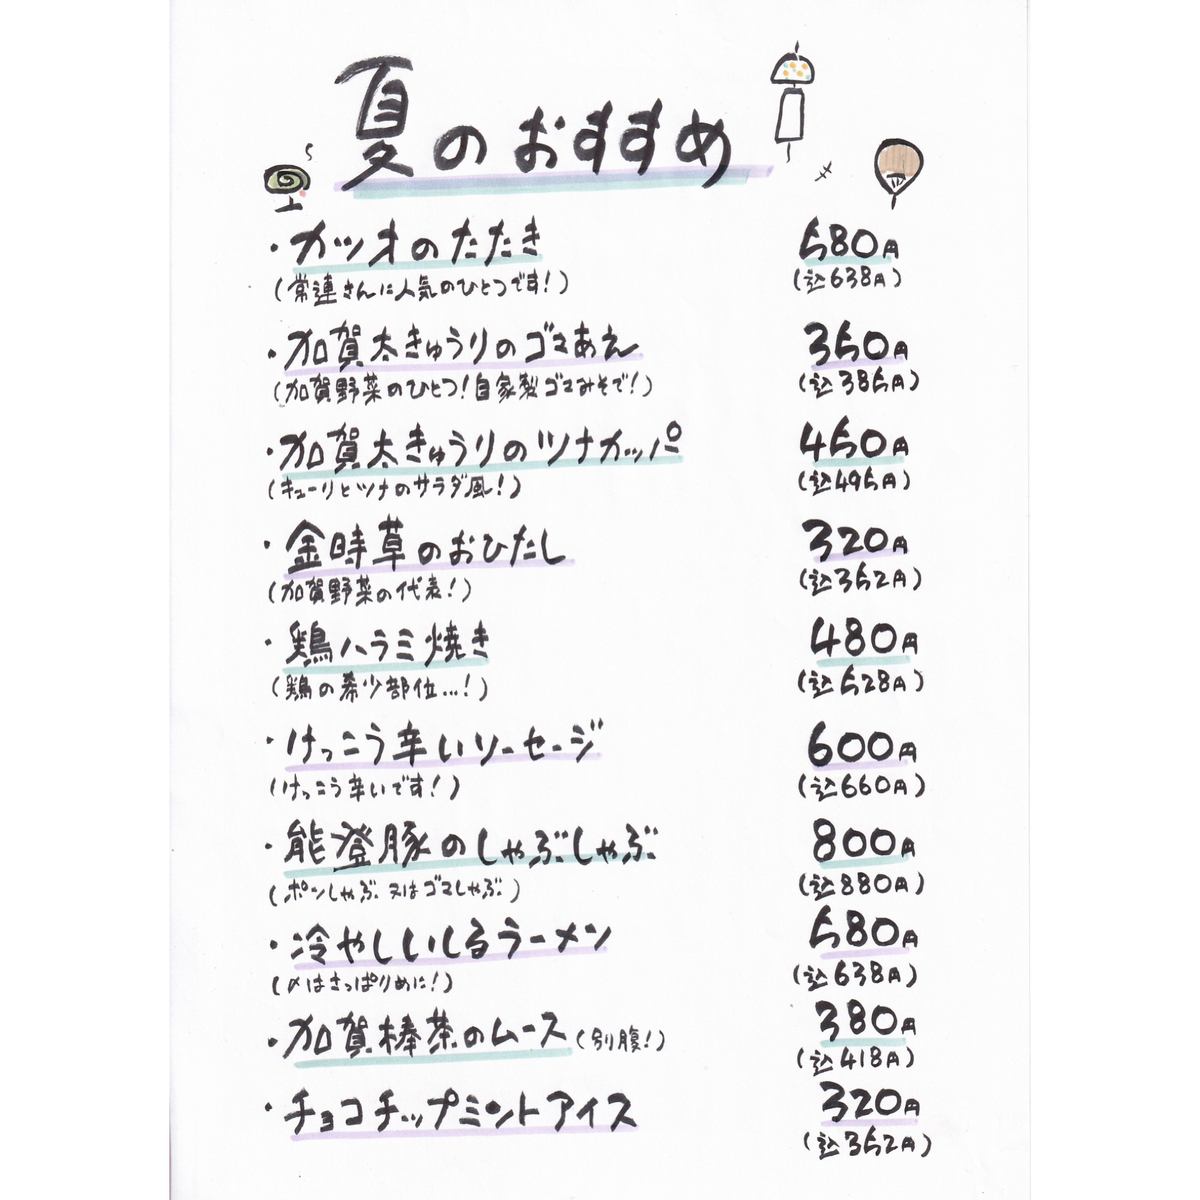 夏のおすすめ
・カツオのたたき 580円
(常連さんに人気のひとつです!) (込638円)
・加賀太きゅうりのゴマあえ 350円
(加賀野菜のひとつ!自家製ゴマみそで!) (込385円)
・加賀太きゅうりのツナカッパ 450円
(キューリとツナのサラダ風!) (込495円)
・金時草のおひたし 320円
(加賀野菜の代表!) (込352円)
・鶏ハラミ焼き 480円
(鶏の希少部位…!) (込528円)
・けっこう辛いソーセージ 600円
(けっこう辛いです!) (込660円)
・能登豚のしゃぶしゃぶ 800円
(ポンしゃぶ 又はゴマしゃぶ) (込880円)
・冷やしいしるラーメン 580円
(〆はさっぱりめに!) (込638円)
・加賀棒茶のムース(別腹!) 380円
(込418円)
・チョコチップミントアイス 320円
(込352円)